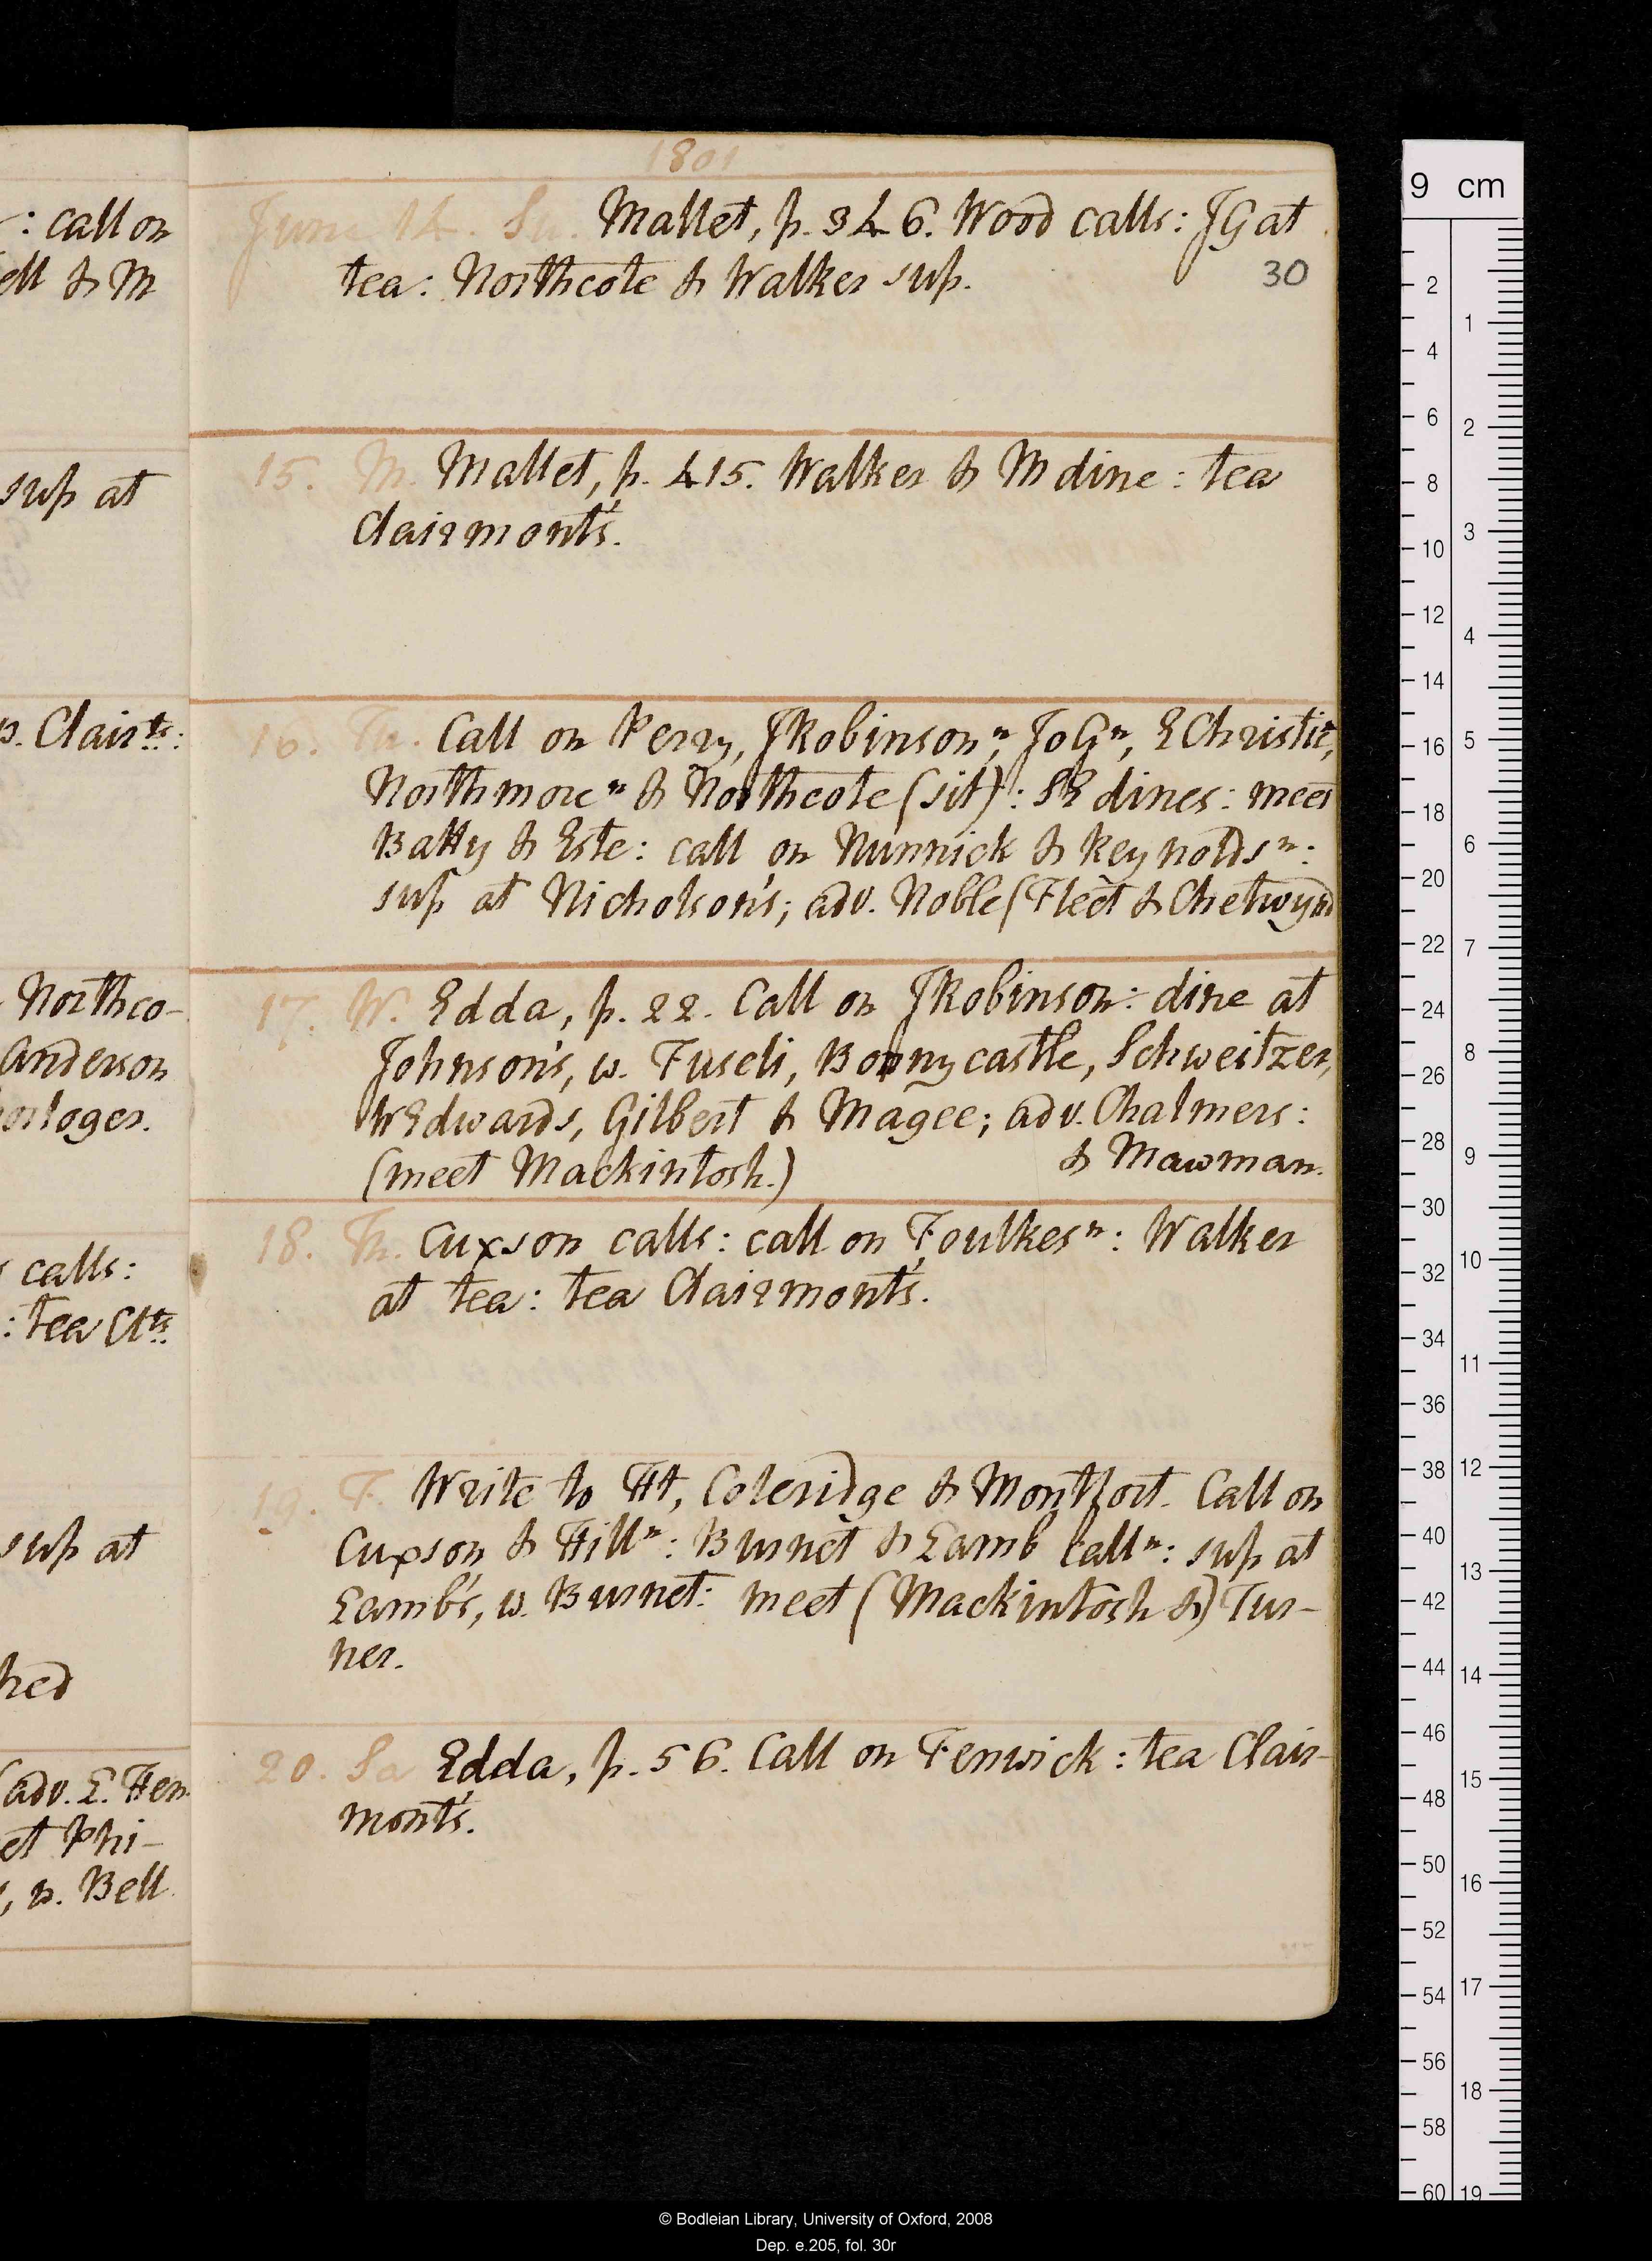 : call on
ell & M
sup at
p. Clairts:
Northco-
Anderson
orloger.
calls:
: tea Clts
sup at
hed
adv. L. Hen
et Phi-
, n. Bell
1801
June 14. Su. Mallet, p. 346. Wood calls: JG at
tea: Northcote & Walker sup.
30
15. M. Mallet, p. 415. Walker & M dine: tea
Clairmont's.
16. Tu. Call on Perry, JRobinson n, JoG n, EChristie,
Northmore n & Northcote (sit): SE dines: meet
Batty & Este: call on Nunnick & Reynolds n:
sup at Nicholson's; adv. Noble (Fleet & Chetwynd
17. W. Edda, p. 22. Call on JRobinson: dine at
Johnson's, w. Fuseli, Bonnycastle, Schweitzer,
WEdwards, Gilbert & Magee; adv. Chalmers:
(meet Mackintosh.) & Mawman.
18. Th. Cuxson calls: call on Foulkes n: Walker
at tea: tea Clairmont's.
19. F. Write to Ht, Coleridge & Montfort. Call on
Cuxson & Hill n: Burnet & Lamb call n: sup at
Lamb's, w. Burnet: meet (Mackintosh &) Tur-
ner.
20. Sa Edda, p. 56. Call on Fenwick: tea Clair-
mont's.
9 cm
2 4 6 8 10 12 14 16 18 20 22 24 26 28 30 32 34 36 38 40 42 44 46 48 50 52 54 56 58 60
1 2 3 4 5 6 7 8 9 10 11 12 13 14 15 16 17 18 19
© Bodleian Library, University of Oxford, 2008
Dep. e.205, fol. 30r